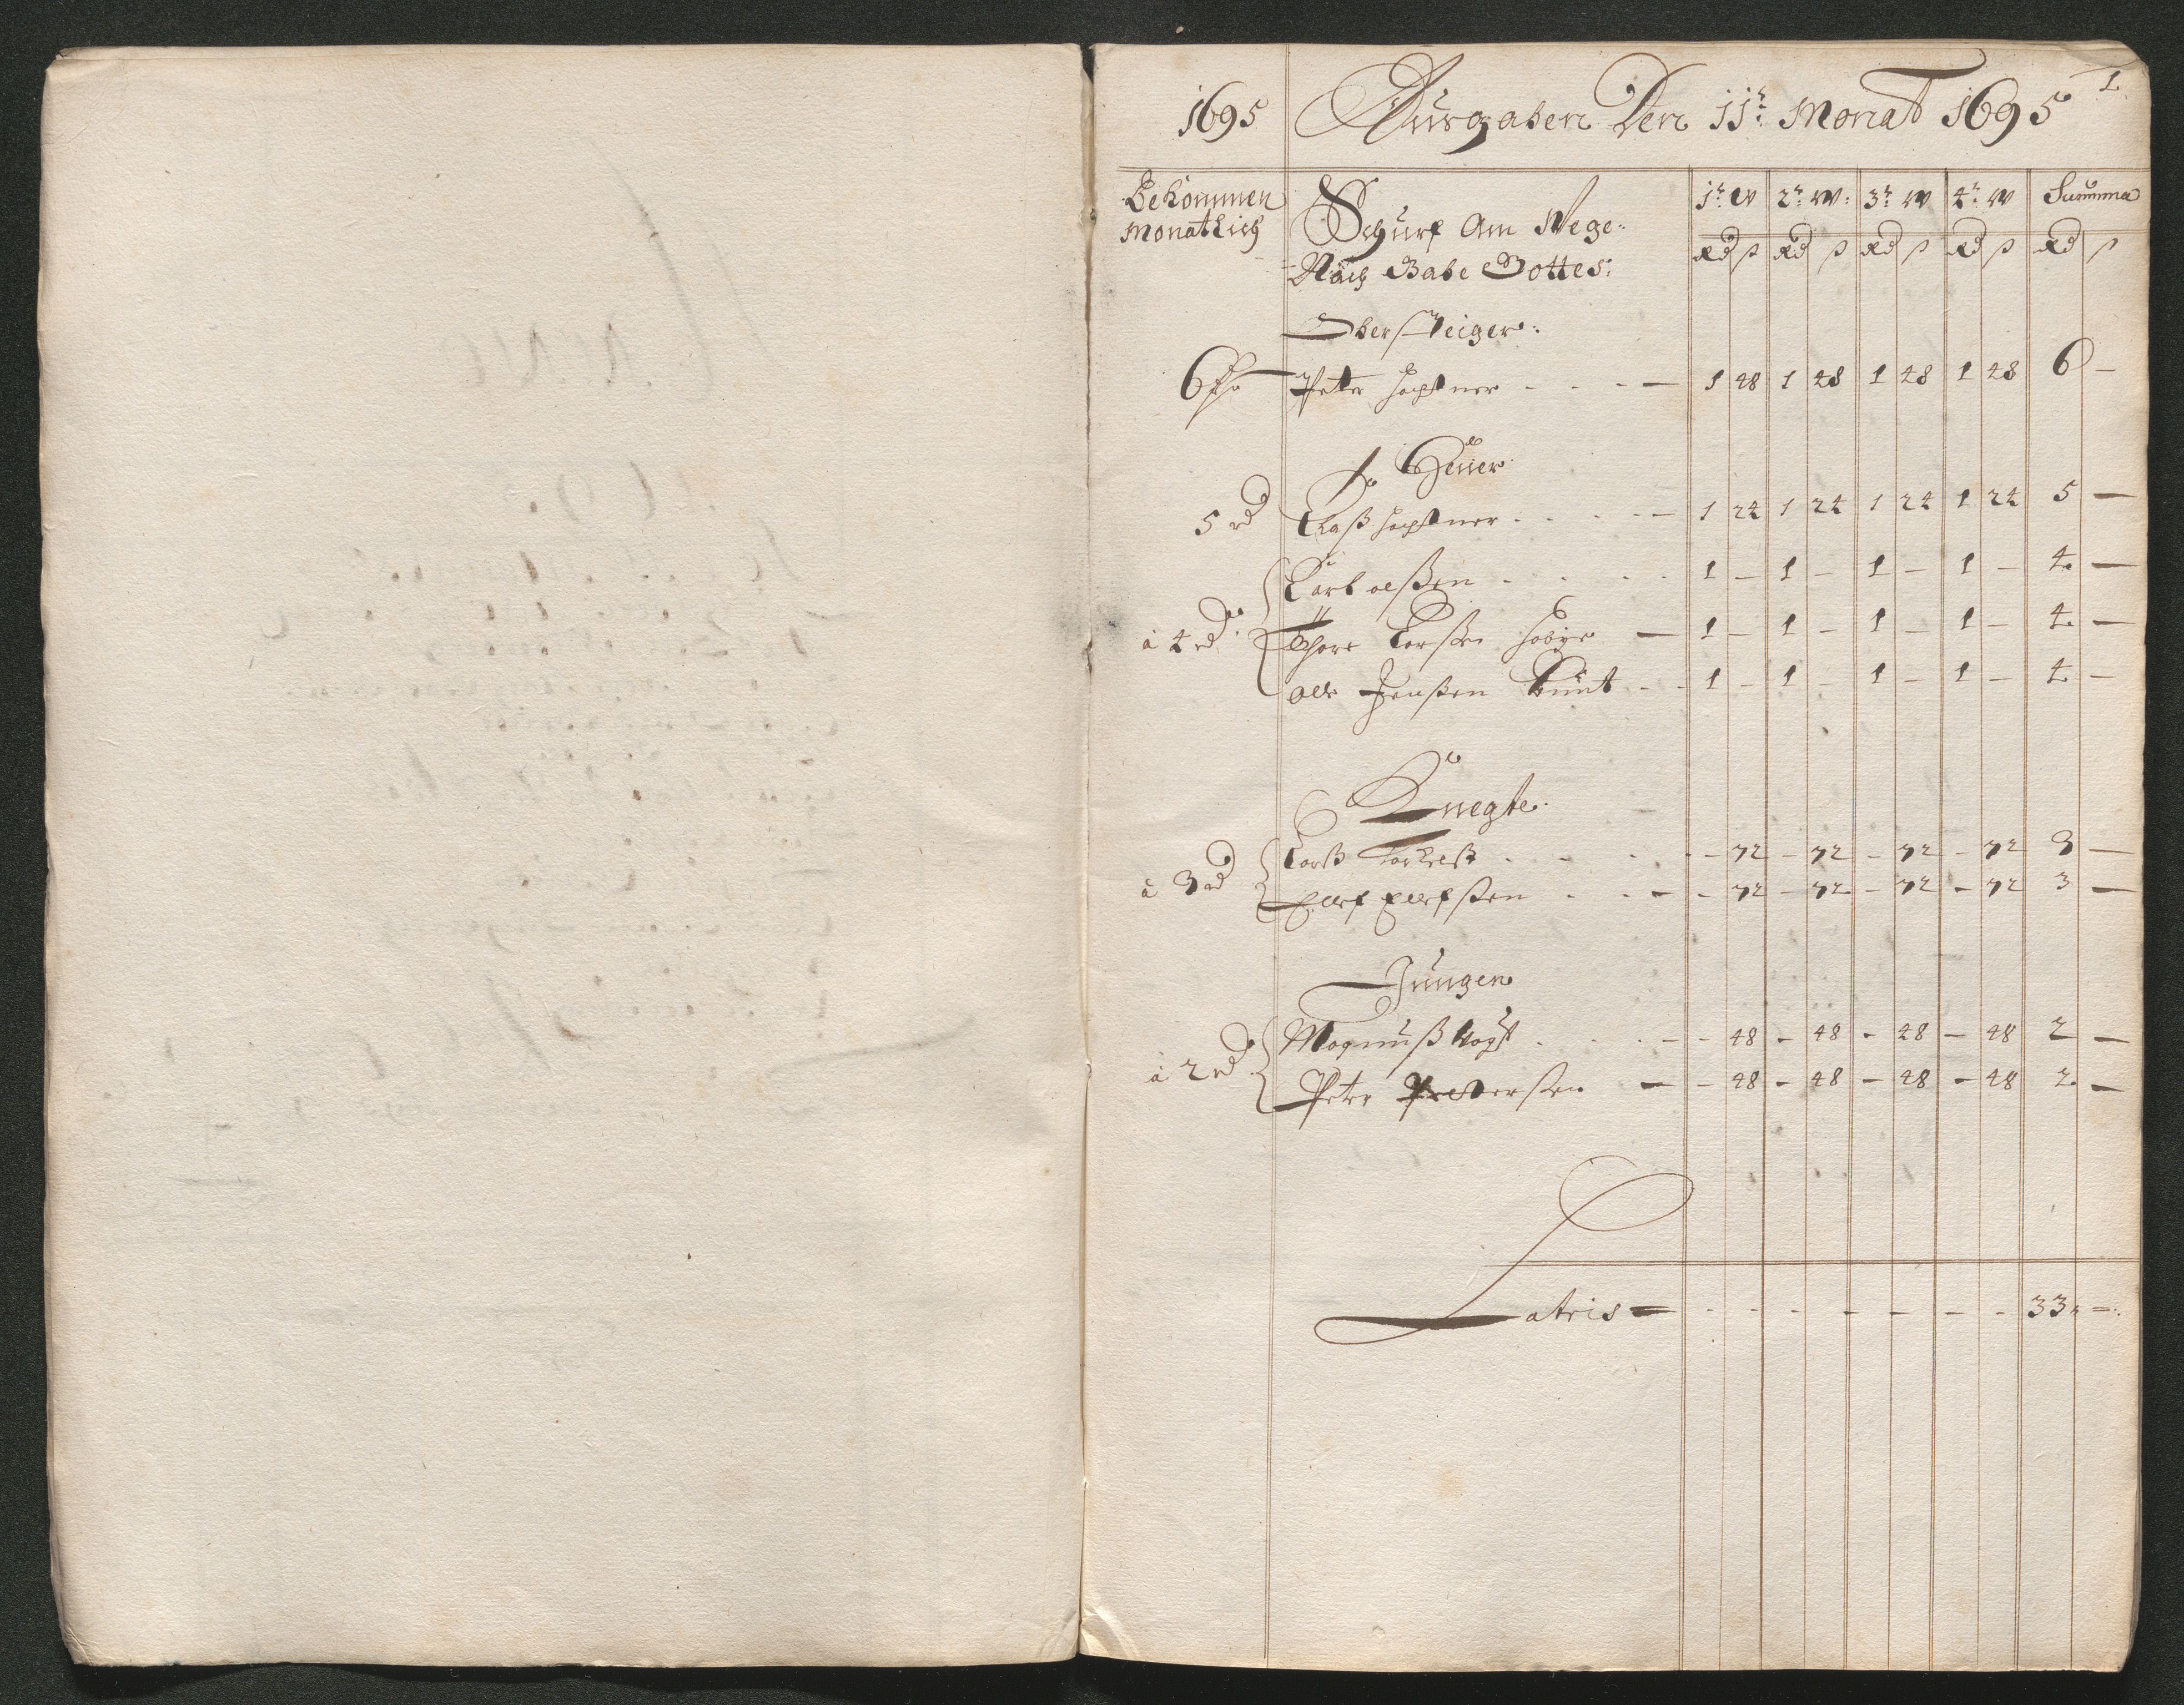 1695 Ausgaben Den 11: Monat 1695 1
Bekommen Monatlich
Schurf Am Wege
Nach Gabe Gottes:
1: W 2: W: 3: W 4: W Summa
Rd ß Rd ß Rd ß Rd ß Rd ß
Obersteiger:
6 Peter - - - 1 48 1 48 1 48 1 48 6 -
Heuer
5 rd Claß - - - 1 24 1 24 1 24 1 24 5 -
olßen - - - 1 - 1 - 1 - 1 - 4 -
à 4 rd Thore Larßen - 1 - 1 - 1 - 1 - 4 -
Ole Jenßen - - 1 - 1 - 1 - 1 - 4 -
Knegte
Larß - - - - 72 - 72 - 72 - 72 3 -
à 3 rd - - - - 72 - 72 - 72 - 72 3 -
Jungen
Magnuß - - - - 48 - 48 - 48 - 48 2 -
à 2 rd Peter Pederßen - - 48 - 48 - 48 - 48 2 -
Latris - - - - - - - - 33 -